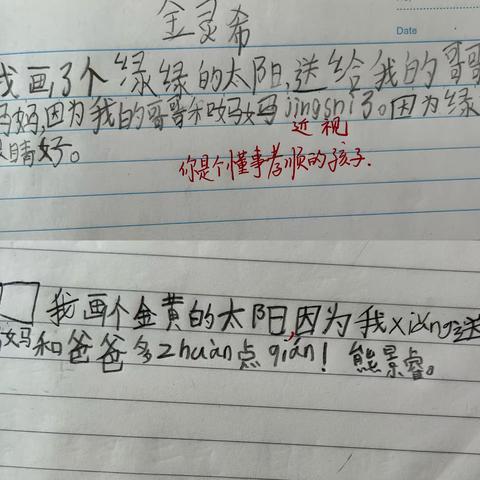 金灵希
Date
我画了个绿绿的太阳,送给我的哥哥
妈妈,因为我的哥哥和妈妈jingsni了。因为绿
近视
眼睛好。
你是个懂事孝顺的孩子.
我画个金黄的太阳,因为我xiǎng送
妈和爸爸多zhuàn点qián!熊景睿。